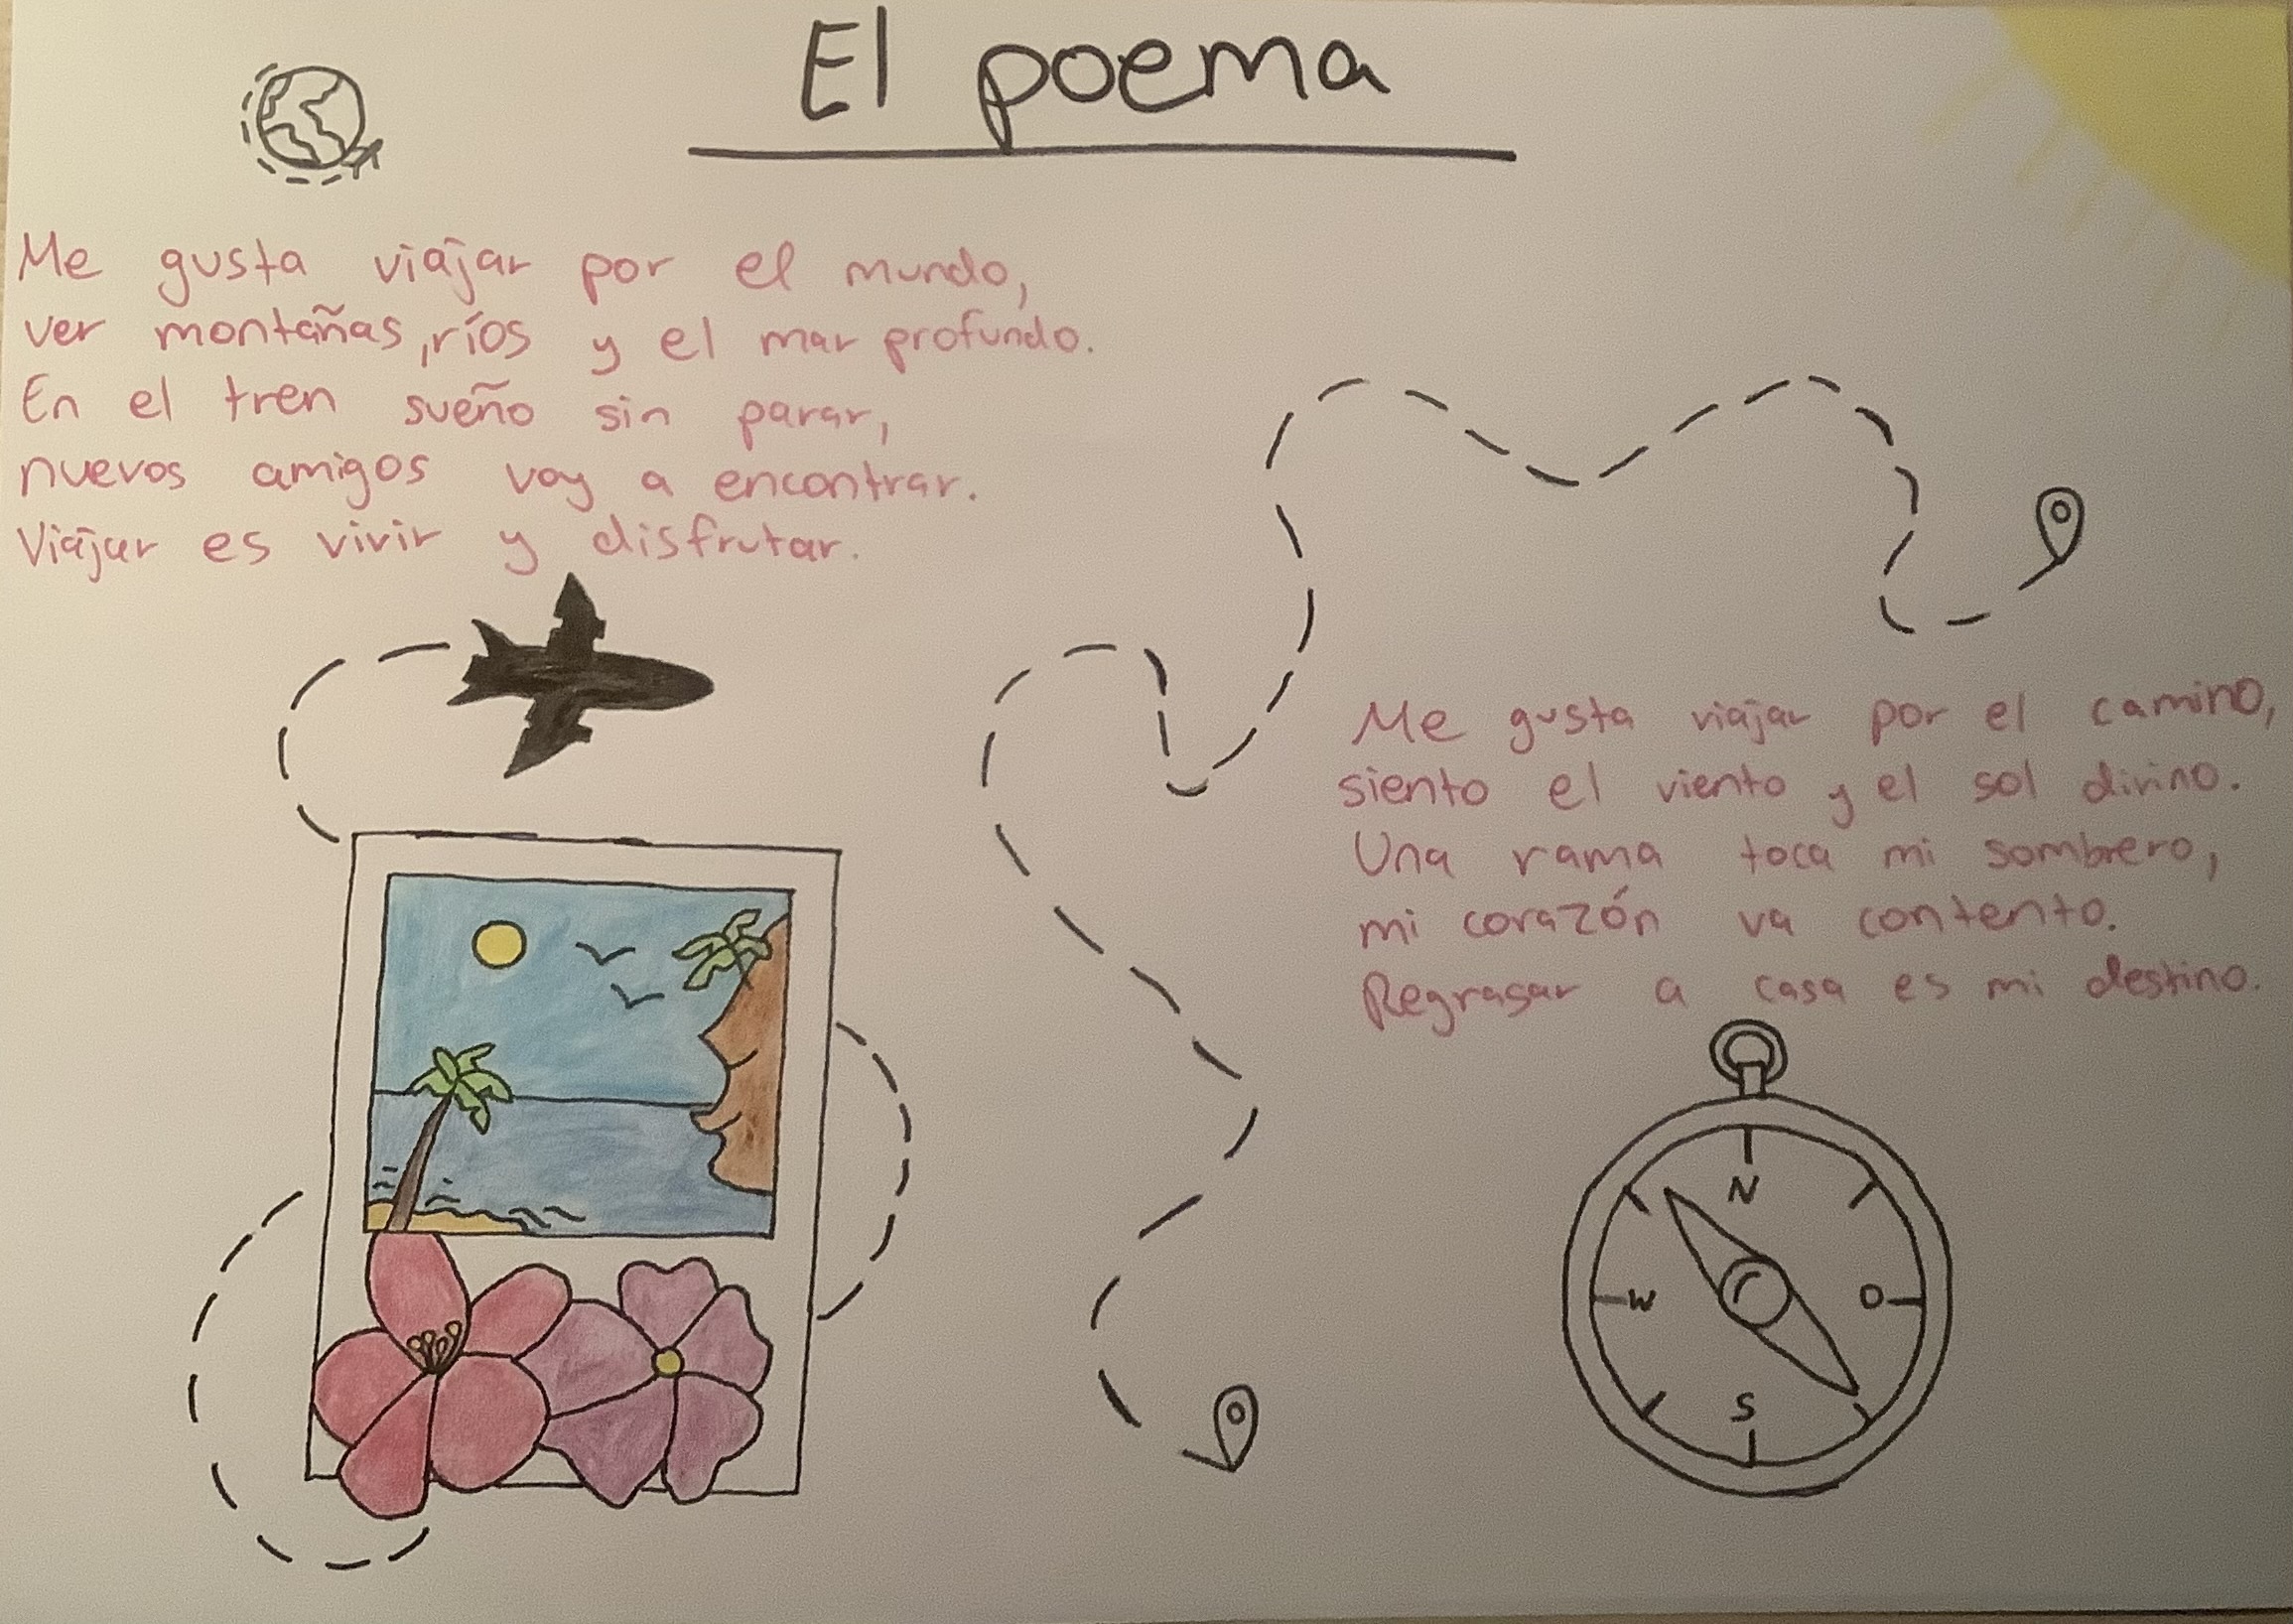 El poema
Me gusta viajar por el mundo,
ver montañas, ríos y el mar profundo.
En el tren sueño sin parar,
nuevos amigos voy a encontrar.
Viajar es vivir y disfrutar.
Me gusta viajar por el camino,
siento el viento y el sol divino.
Una rama toca mi sombrero,
mi corazón va contento.
Regrasar a casa es mi destino.
N
W O
S